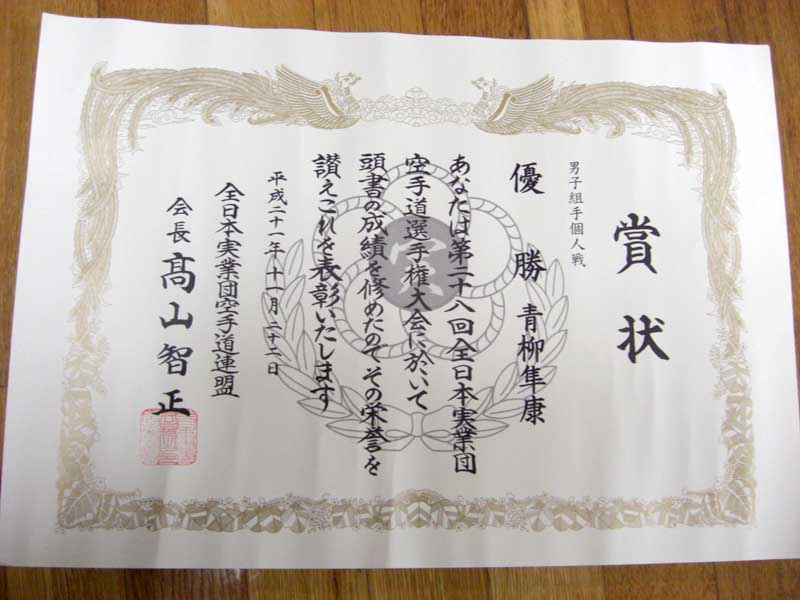 賞状
男子組手個人戦
優勝 青柳隼康
あなたは第二十八回全日本実業団
空手道選手権大会に於いて
頭書の成績を修めたのでその栄誉を
讃えこれを表彰いたします
平成二十一年十一月二十二日
全日本実業団空手道連盟
会長 髙山智正
実